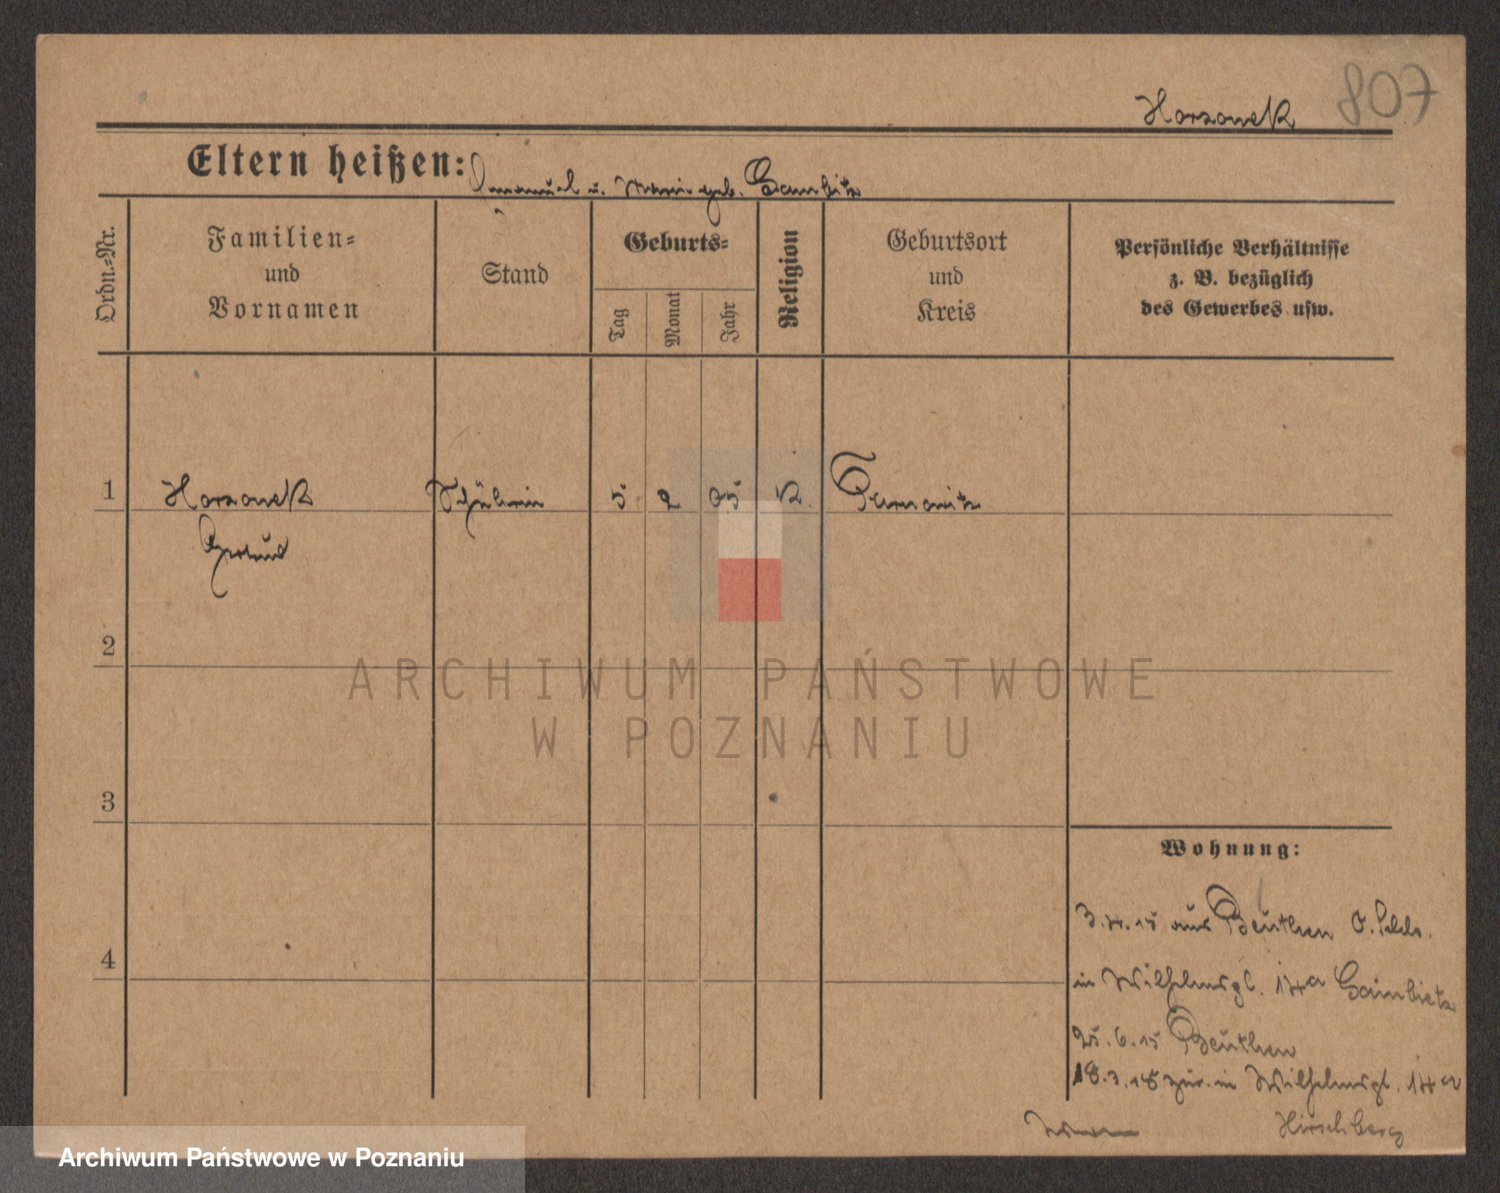 807
Horzonek
Eltern heißen: Emanuel u. Marie geb. Gambietz
Ordn.-Nr.
Familien-
und
Vornamen
Stand
Geburts-
Tag
Monat
Jahr
Religion
Geburtsort
und
Kreis
Persönliche Verhältnisse
z. B. bezüglich
des Gewerbes usw.
1 Horzonek Schülerin 5 2 05 K Tarnowitz
Gertrud
2
ARCHIWUM PAŃSTWOWE
W POZNANIU
3
Wohnung:
3.4.15 aus Beuthen O. Schls.
4
in Wilhelmspl. 14a Gambietz
25.6.15 Beuthen
18.3.18 zur. in Wilhelmspl. 14a
Hirschberg
Archiwum Państwowe w Poznaniu